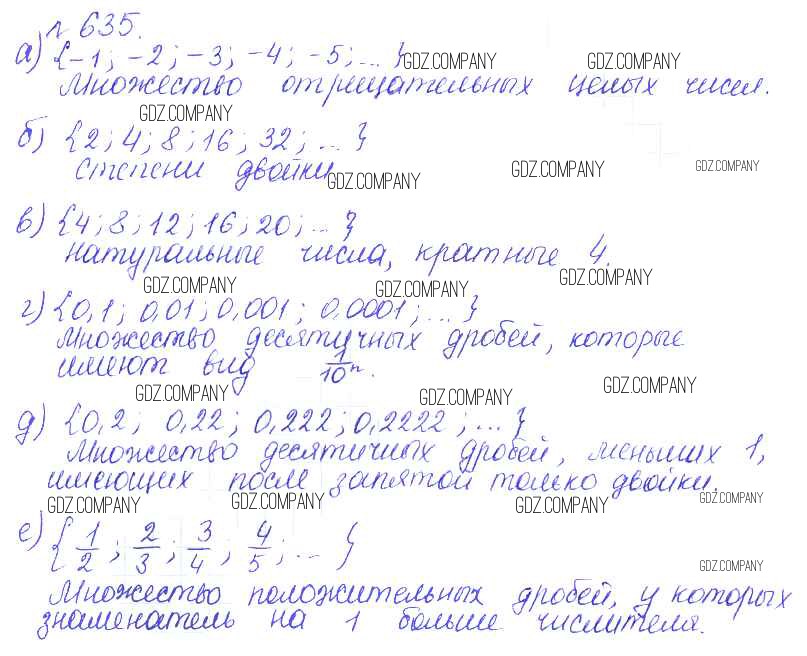 № 635.
а) {-1; -2; -3; -4; -5; ... }
GDZ.COMPANY GDZ.COMPANY
Множество отрицательных целых чисел.
GDZ.COMPANY
б) {2; 4; 8; 16; 32; ... }
степени двойки
GDZ.COMPANY GDZ.COMPANY GDZ.COMPANY
в) {4; 8; 12; 16; 20; ... }
натуральные числа, кратные 4.
GDZ.COMPANY GDZ.COMPANY GDZ.COMPANY
г) {0,1; 0,01; 0,001; 0,0001; ... }
Множество десятичных дробей, которые
имеют вид 1/10ⁿ.
GDZ.COMPANY GDZ.COMPANY GDZ.COMPANY
д) {0,2; 0,22; 0,222; 0,2222; ... }
Множество десятичных дробей, меньших 1,
имеющих после запятой только двойки.
GDZ.COMPANY GDZ.COMPANY GDZ.COMPANY GDZ.COMPANY
е) {1/2; 2/3; 3/4; 4/5; ... }
GDZ.COMPANY
Множество положительных дробей, у которых
знаменатель на 1 больше числителя.